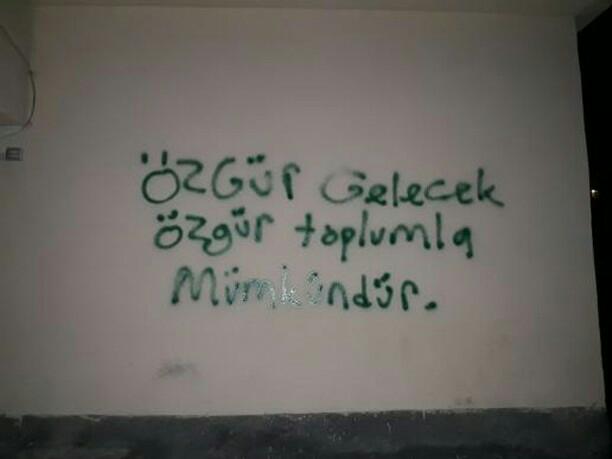 özgür Gelecek
özgür toplumla
Mümkündür.